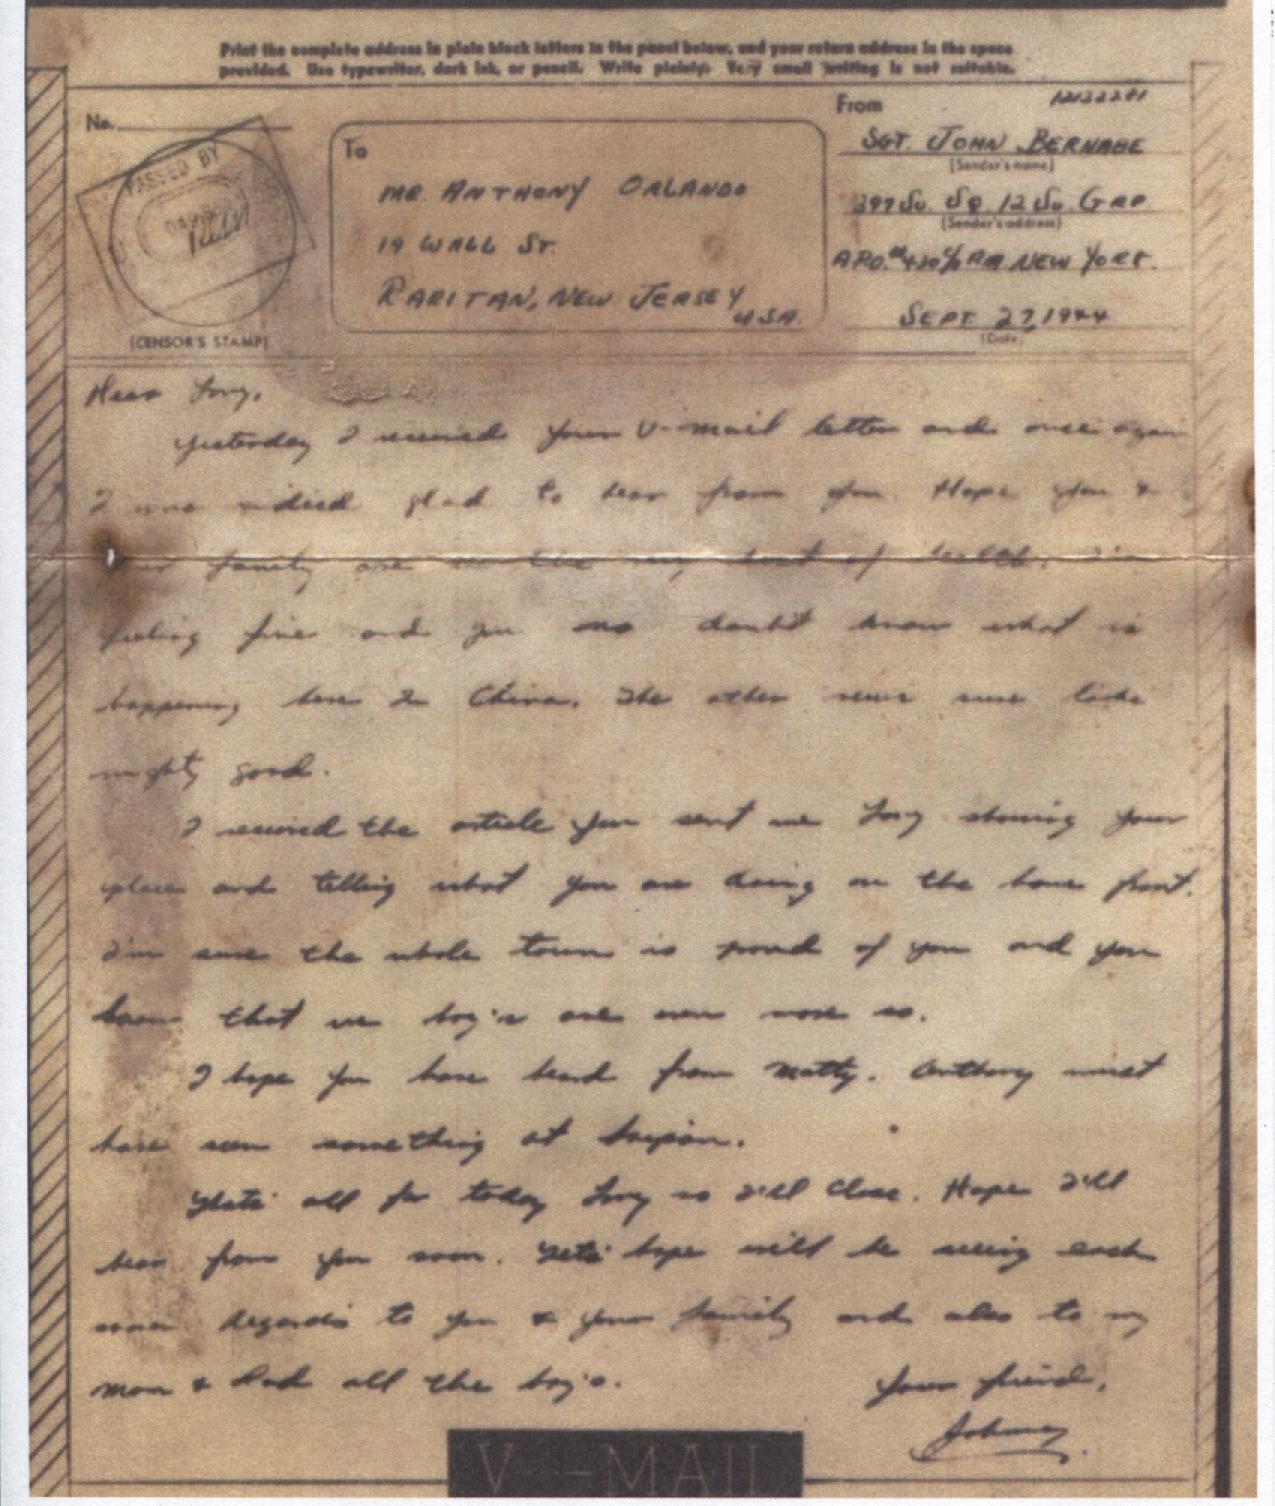 Print the complete address in plain block letters in the panel below, and your return address in the space
provided. Use typewriter, dark ink, or pencil. Write plainly. Very small writing is not suitable.
No.
PASSED BY
(CENSOR'S STAMP)
To
MR. ANTHONY ORLANDO
19 WALL ST.
RARITAN, NEW JERSEY
USA.
From
SGT. JOHN BERNABE
(Sender's name)
(Sender's address)
A.P.O. #430 % P.M. NEW YORK.
SEPT. 27, 1944
(Date)
Dear Tony,
Yesterday I received your V-mail letter and once again
I was indeed glad to hear from you. Hope you &
your family are in the very best of health. I'm
feeling fine and you no doubt know what is
happening here in China. The other news sure looks
mighty good.
I received the article you sent me Tony showing your
place and telling what you are doing on the home front.
I'm sure the whole town is proud of you and you
know that we boy's are even more so.
I hope you have heard from Matty. Anthony must
have seen something at Saipan.
That's all for today Tony so I'll close. Hope I'll
hear from you soon. Let's hope will be seeing each
soon Regards to you & your family and also to my
Mom & Dad all the boy's.
Your friend,
Johnny
V-MAIL